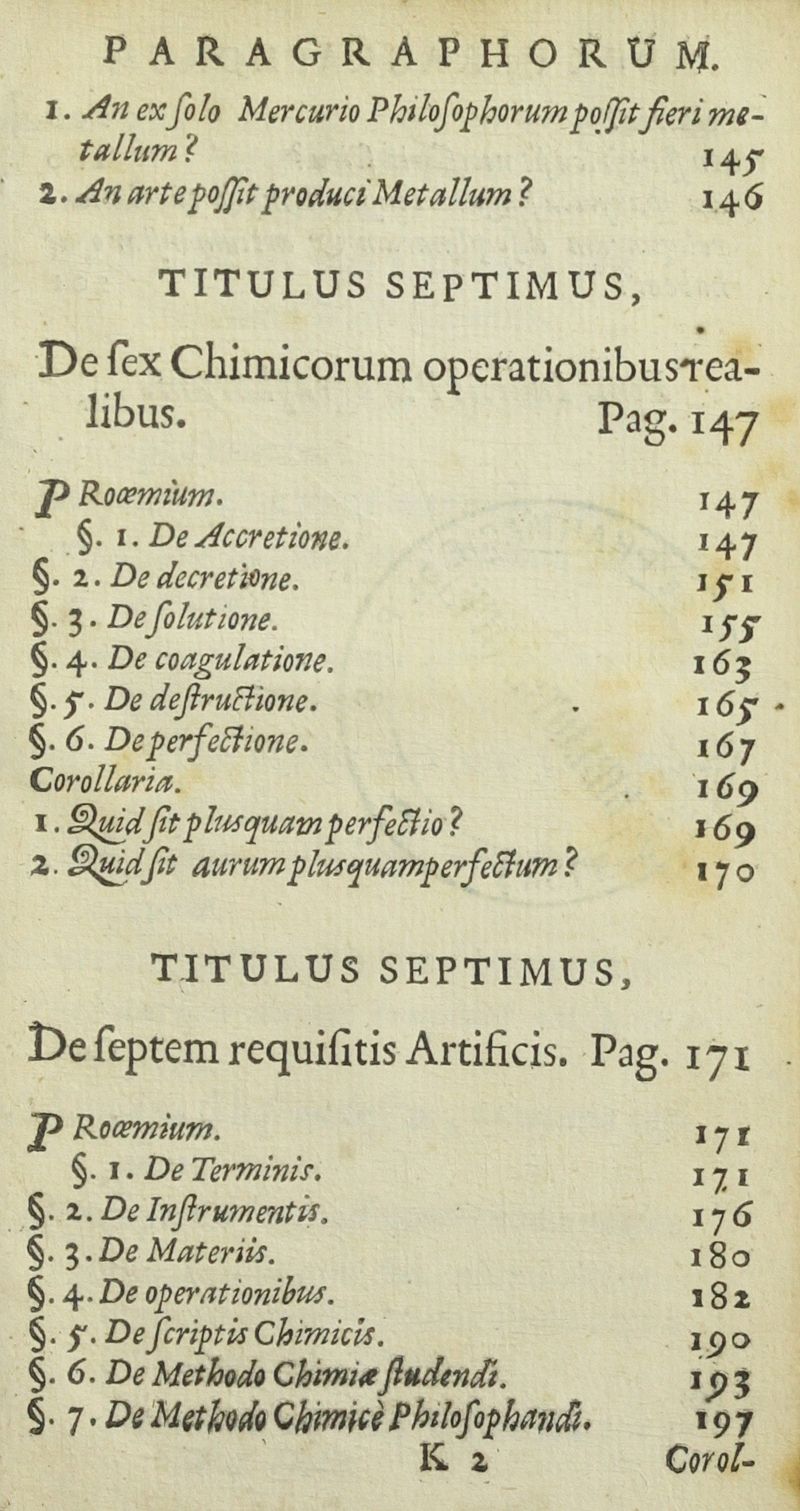 PARAGRAPHORUM.
1. An ex ſolo Mercurio Philoſophorum poſſit fieri me-
tallum? 145
2. An arte poſſit produci Metallum? 146
TITULUS SEPTIMUS,
De ſex Chimicorum operationibus rea-
libus. Pag. 147
PRoœmium. 147
§. 1. De Accretione. 147
§. 2. De decretione. 151
§. 3. De ſolutione. 155
§. 4. De coagulatione. 163
§. 5. De deſtructione. 165
§. 6. De perfectione. 167
Corollaria. 169
1. Quid ſit plusquam perfectio? 169
2. Quid ſit aurum plusquamperfectum? 170
TITULUS SEPTIMUS,
De ſeptem requiſitis Artificis. Pag. 171
PRoœmium. 171
§. 1. De Terminis. 171
§. 2. De Inſtrumentis. 176
§. 3. De Materiis. 180
§. 4. De operationibus. 182
§. 5. De ſcriptis Chimicis. 190
§. 6. De Methodo Chimiæ ſtudendi. 193
§. 7. De Methodo Chimicè Philoſophandi. 197
K 2 Corol-